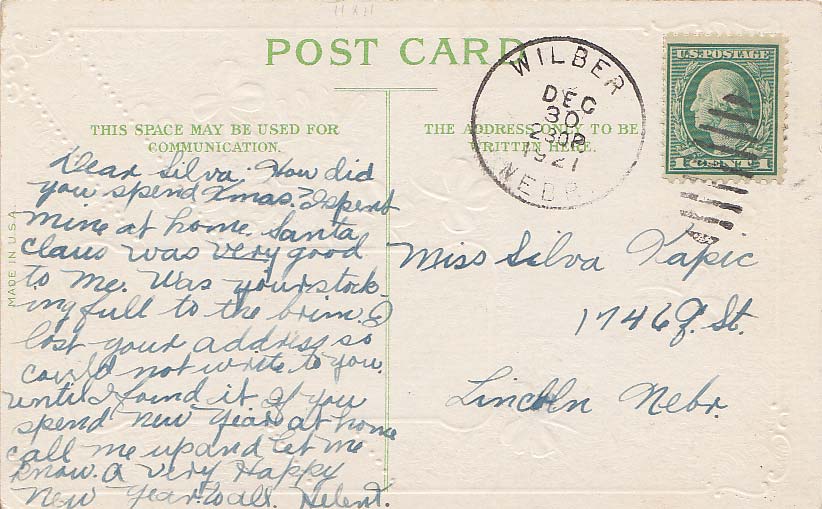 POST CARD
THIS SPACE MAY BE USED FOR
COMMUNICATION.
THE ADDRESS ONLY TO BE
WRITTEN HERE.
MADE IN U.S.A.
WILBER
DEC
30
230P
1921
NEBR.
U.S. POSTAGE
1 CENT 1
Dear Silva: How did
you spend Xmas? I spent
mine at home. Santa
claus was very good
to me. Was your stock-
ing full to the brim. I
lost your address so
could not write to you.
until I found it If you
spend New Year at home
call me up and let me
know. A very Happy
New Year. to all. Helen T.
Miss Silva Kapic
1746 Q. St.
Lincoln Nebr.